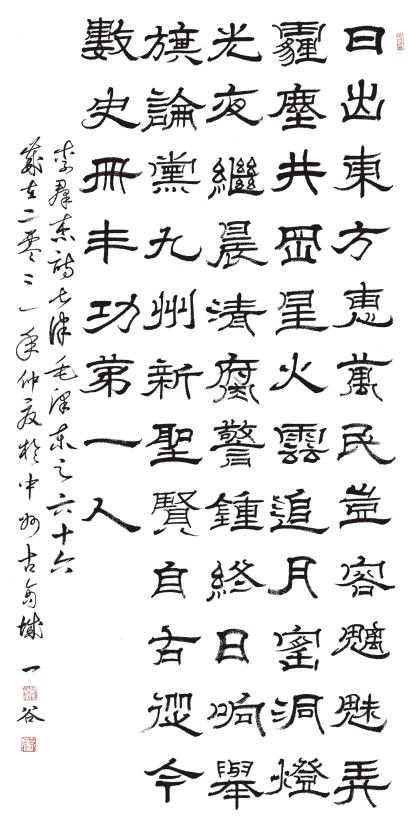 日出東方惠萬民豈容魑魅弄
霾塵井岡星火雲追月窰洞燈
光夜繼晨清腐警鐘終日响舉
旗論黨九州新聖賢自古從今
數史冊丰功第一人
李群东诗七律毛泽东之六十六
歲在二零二一年仲夏於中州古禹城 一谷